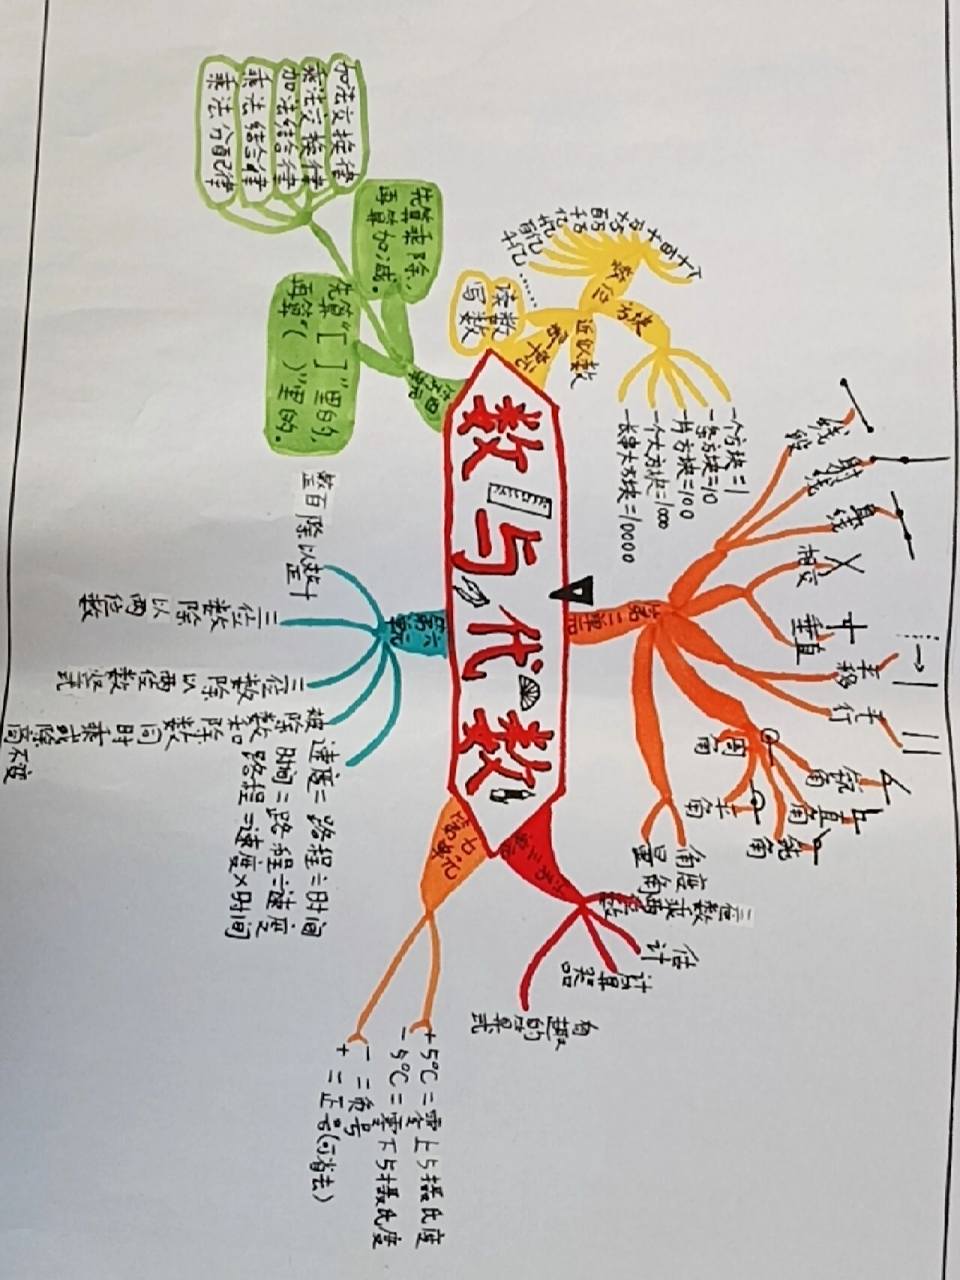 数与代数
第一单元
数位
个
十
百
千
万
十万
百万
千万
亿
十亿
百亿
千亿
……
方块
一个方块=1
一条方块=10
一片方块=100
一个大方块=1000
一长串大方块=10000
近似数
读数
写数
第二单元
线段
射线
直线
相交
垂直
平移
平行
周角
平角
锐角
直角
钝角
角度
量角
第三单元
三位数
乘两位数
估计
计算器
有趣的算式
第四单元
先算乘除,
再算加减.
先算"[ ]"里的,
再算"( )"里的.
加法交换律
乘法交换律
加法结合律
乘法结合律
乘法分配律
第六单元
整百除以整十
三位数除以两位数
三位数除以两位数竖式
被除数和除数同时乘或除同
不变
速度=路程÷时间
时间=路程÷速度
路程=速度×时间
第七单元
+5℃=零上5摄氏度
-5℃=零下5摄氏度
- =负号
+ =正号(可省去)